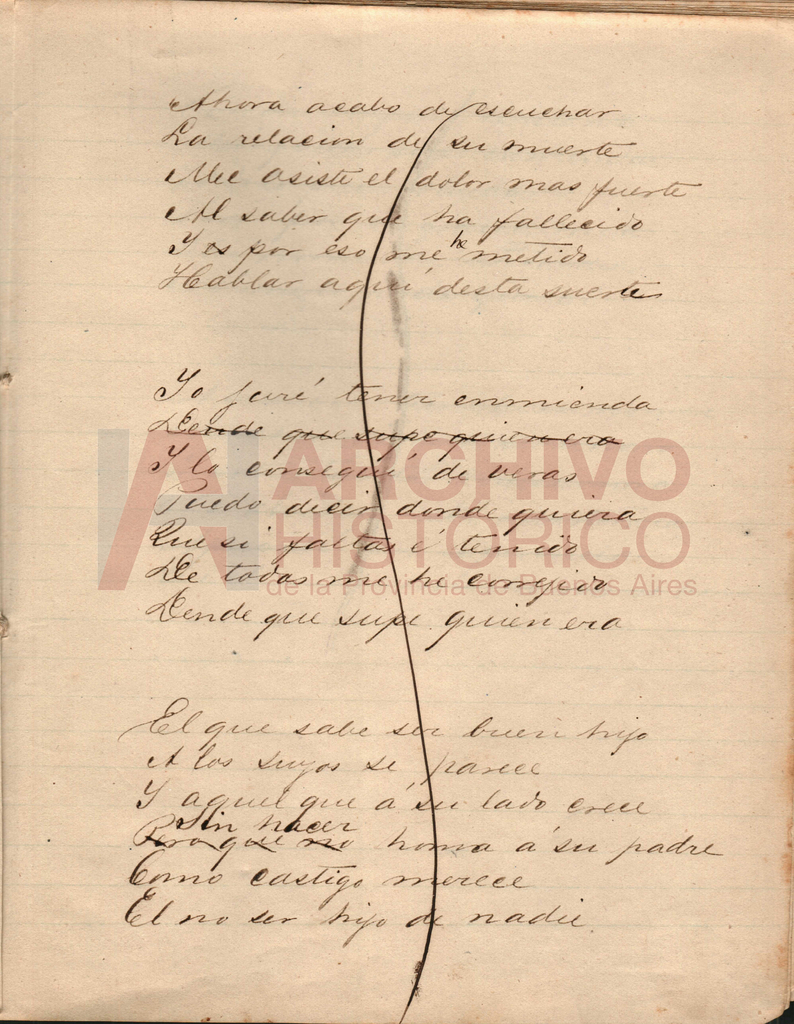 Ahora acabo de escuchar
La relacion de su muerte
Me asiste el dolor mas fuerte
Al saber que ha fallecido
Y es por eso me he metido
Hablar aquí desta suerte
Yo juré tener enmienda
Dende que supe quien era
Y lo conseguí de veras
Puedo decir donde quiera
Que si faltas é tenido
De todas me he correjido
Dende que supe quien era
El que sabe ser buen hijo
A los suyos se parece
Y aquel que á su lado crece
Sin hacer
Pero que no honra á su padre
Como castigo merece
El no ser hijo de nadie.
ARCHIVO
HISTORICO
de la Provincia de Buenos Aires